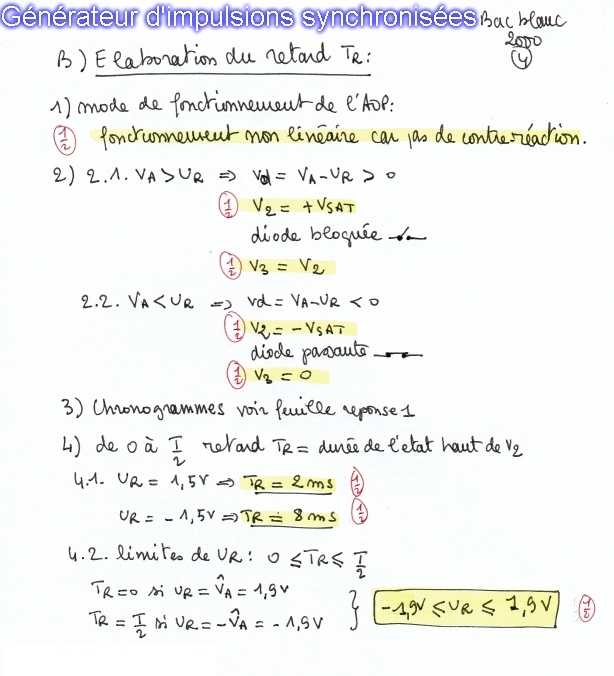 Générateur d'impulsions synchronisées Bac blanc
2000
4
B) Elaboration du retard TR:
1) mode de fonctionnement de l'AOP:
1/2 fonctionnement non linéaire car pas de contre-réaction.
2) 2.1. VA > UR ⇒ Vd = VA - UR > 0
1/2 V2 = + VSAT
diode bloquée
1/2 V3 = V2
2.2. VA < UR ⇒ Vd = VA - UR < 0
1/2 V2 = - VSAT
diode passante
1/2 V3 = 0
3) Chronogrammes voir feuille reponse 1
4) de 0 à T/2 retard TR = durée de l'etat haut de V2
4.1. UR = 1,5V ⇒ TR = 2 ms 1/2
UR = - 1,5V ⇒ TR = 8 ms 1/2
4.2. limites de UR : 0 ≤ TR ≤ T/2
TR = 0 si UR = V̂A = 1,9V
TR = T/2 si UR = - V̂A = - 1,9V } -1,9V ≤ UR ≤ 1,9V 1/2